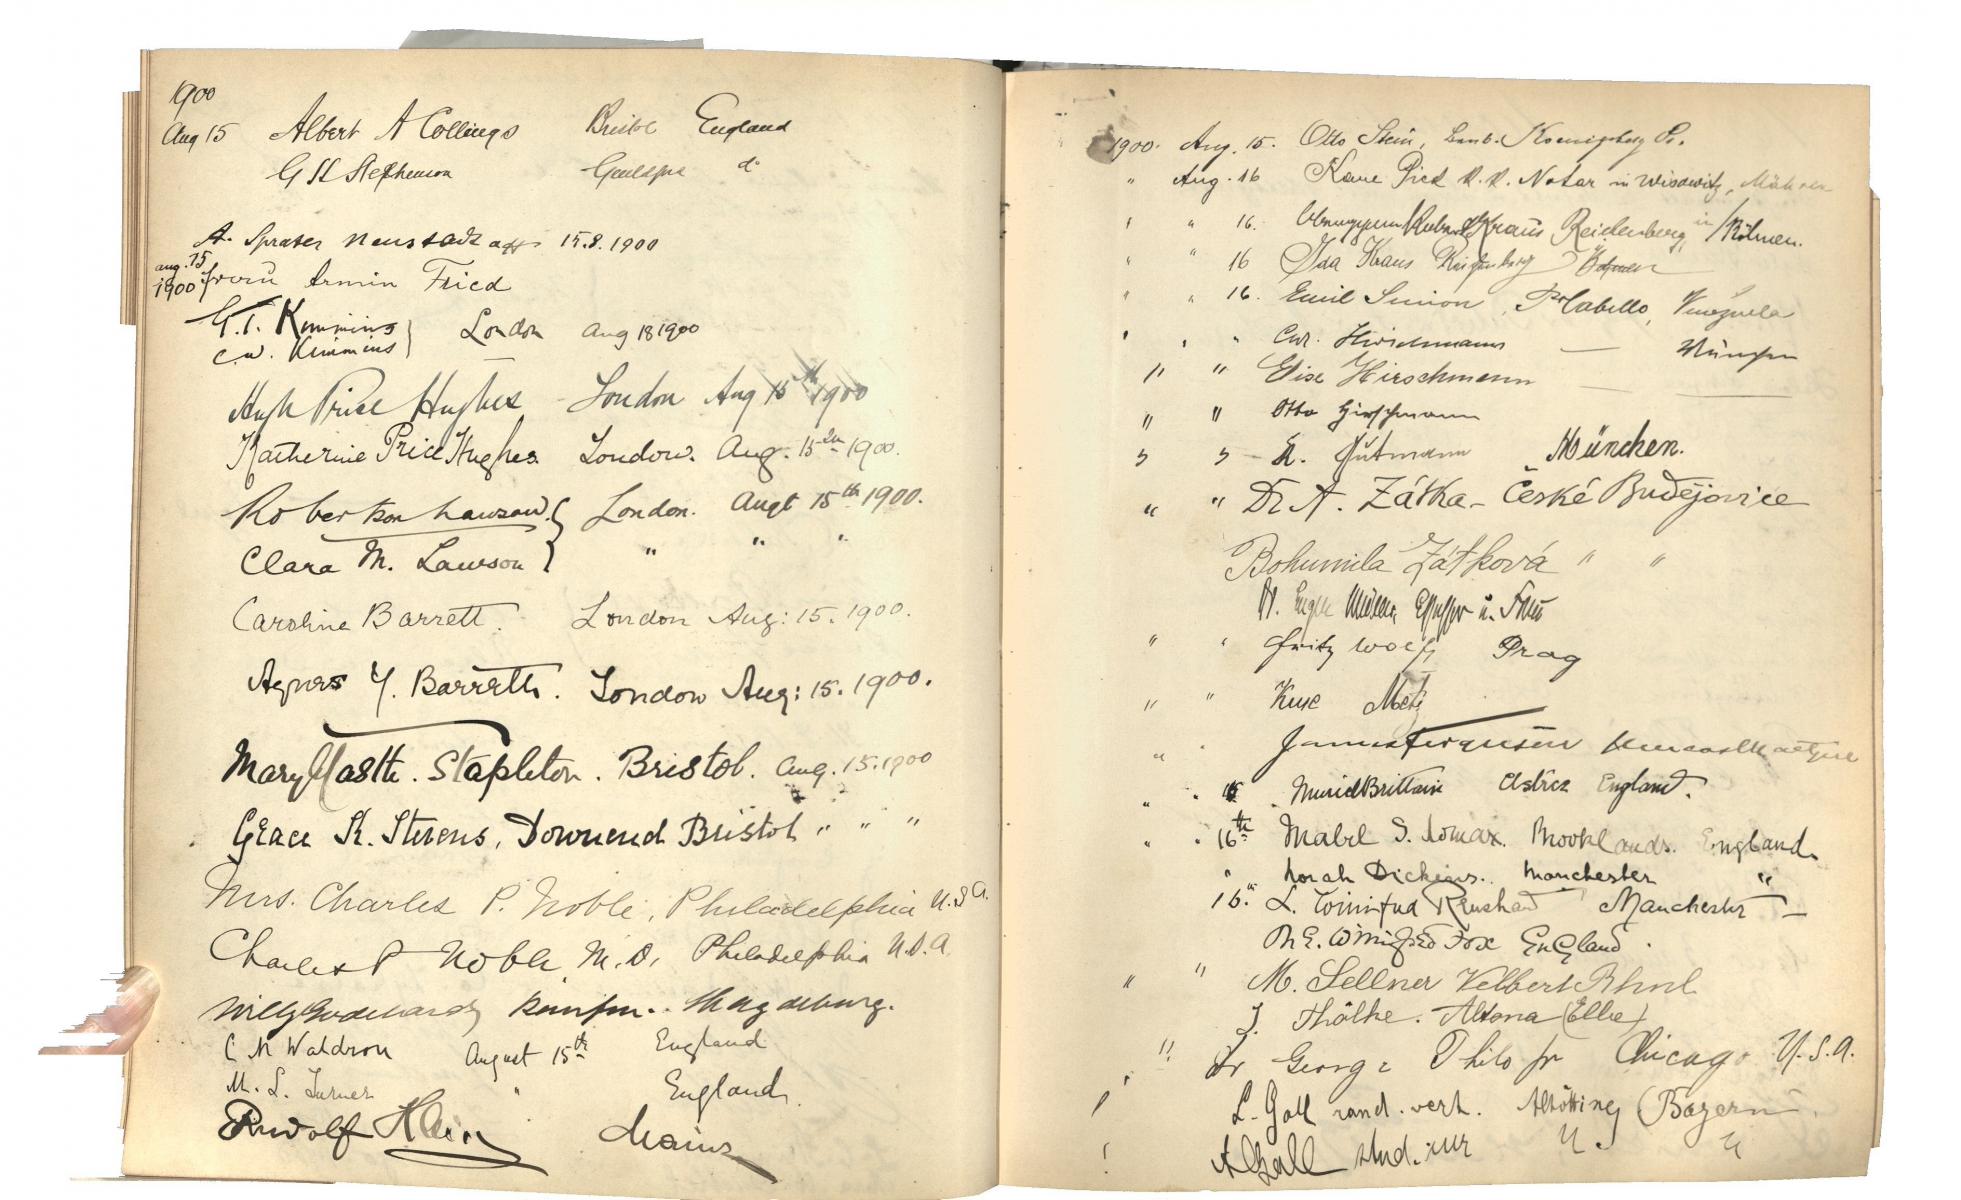 1900
Aug 15 Albert A Collings Bristol England
G H Stephenson do
A. Sprater Neustadt 15.8.1900
aug. 15 1900 Armin Fried
G.T. Kimmins London Aug 18 1900
C.W. Kimmins
Hugh Price Hughes London Aug 15th 1900
Katherine Price Hughes London. Aug. 15th 1900.
Robertson Lawson London. Augt 15th 1900.
Clara M. Lawson " " "
Caroline Barrett. London Aug: 15. 1900.
Agnes Y. Barrett. London Aug: 15. 1900.
Mary Stapleton. Bristol. Aug. 15. 1900
Grace K. Stevens, Downend Bristol " " "
Mrs. Charles P. Noble, Philadelphia U.S.A.
Charles P Noble, M.D, Philadelphia U.S.A.
Willy Magdeburg.
C N Waldron August 15th England
M. L. Turner " England.
Rudolf Klein Mainz
1900. Aug. 15. Otto Stein, Koenigsberg Pr.
" Aug. 16 Pick K.K. Notar in Wisowitz, Mähren
" " 16. Kraus Reichenberg in Böhmen.
" " 16 Ida Kraus Böhmen
" " 16. Emil Simon, Pto Cabello, Venezuela
" " " Hirschmann — München
" " Elise Hirschmann —
" " Otto Hirschmann
" " Gutmann München.
" " Dr A. Zátka - České Budějovice
Bohumila Zátková " "
u. Frau
" " Fritz Wolf Prag
" " Metz
" " James Ferguson Newcastle on Tyne
" " 15 Muriel Brittain England.
" " 16th Mabel S. Lomax. Brooklands. England.
" Norah Dickins.. Manchester "
16" L. Winifred Renshaw Manchester —
M E. Winifred Fox England.
" " M. Sellner Velbert Rhnl
J. Thölke. Altona (Elbe)
" Dr George Philo jr Chicago U.S.A.
" L. Gall cand. Altötting (Bayern)
" A Gall stud. jur " "